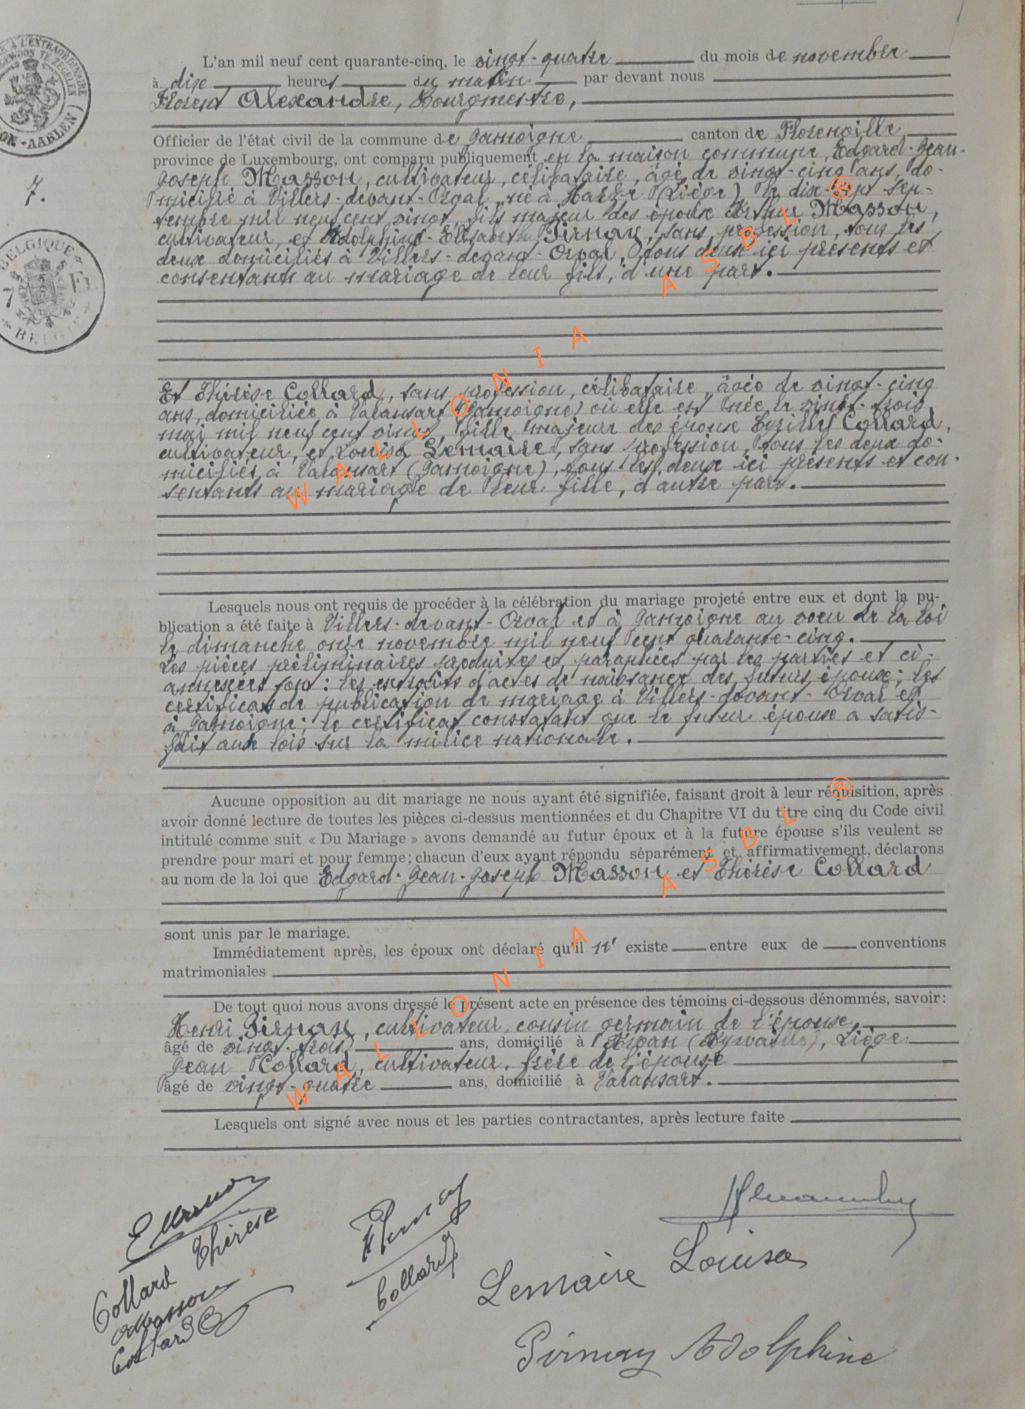 7.
L'an mil neuf cent quarante-cinq, le vingt-quatre du mois de novembre
à dix heures du matin par devant nous
Florent Alexandre, Bourgmestre,
Officier de l'état civil de la commune de Jamoigne canton de Florenville
province de Luxembourg, ont comparu publiquement en la maison commune, Edgard-Jean-
Joseph Masson, cultivateur, célibataire, âgé de vingt-cinq ans, do-
micilié à Villers-devant-Orval, né à Harzé (Liège) le dix-sept sep-
tembre mil neuf cent vingt, fils majeur des époux Arthur Masson,
cultivateur, et Adolphine-Elisabeth Pirnay, sans profession, tous les
deux domiciliés à Villers-devant-Orval, tous deux ici présents et
consentants au mariage de leur fils, d'une part.
Et Thérèse Collard, sans profession, célibataire, âgée de vingt-cinq
ans, domiciliée à Valansart (Jamoigne) où elle est née le vingt-trois
mai mil neuf cent vingt, fille majeure des époux Collard,
cultivateur, et Louisa Lemaire, sans profession, tous les deux do-
miciliés à Valansart (Jamoigne), tous les deux ici présents et con-
sentants au mariage de leur fille, d'autre part.
Lesquels nous ont requis de procéder à la célébration du mariage projeté entre eux et dont la pu-
blication a été faite à Villers-devant-Orval et à Jamoigne au voeu de la loi
le dimanche onze novembre mil neuf cent quarante-cinq.
Les pièces préliminaires produites et paraphées par les parties et ci-
annexées sont : les extraits d'actes de naissance des futurs époux; les
certificats de publication de mariage à Villers-devant-Orval et
à Jamoigne; le certificat constatant que le futur époux a satis-
fait aux lois sur la milice nationale.
Aucune opposition au dit mariage ne nous ayant été signifiée, faisant droit à leur réquisition, après
avoir donné lecture de toutes les pièces ci-dessus mentionnées et du Chapitre VI du titre cinq du Code civil
intitulé comme suit « Du Mariage » avons demandé au futur époux et à la future épouse s'ils veulent se
prendre pour mari et pour femme; chacun d'eux ayant répondu séparément et affirmativement, déclarons
au nom de la loi que Edgard-Jean-Joseph Masson et Thérèse Collard
sont unis par le mariage.
Immédiatement après, les époux ont déclaré qu'il n' existe entre eux de conventions
matrimoniales
De tout quoi nous avons dressé le présent acte en présence des témoins ci-dessous dénommés, savoir:
Henri Pirnay, cultivateur, cousin germain de l'épouse
âgé de vingt-trois ans, domicilié à Liège
Jean Collard, cultivateur, frère de l'épouse
âgé de vingt-quatre ans, domicilié à Valansart.
Lesquels ont signé avec nous et les parties contractantes, après lecture faite
E Masson
Collard Thérèse
Masson
Collard
H Pirnay
Collard
Lemaire Louisa
Pirnay Adolphine
BELGIQUE
BELGIË
WALLONIA ASBL ®
WALLONIA ASBL ®